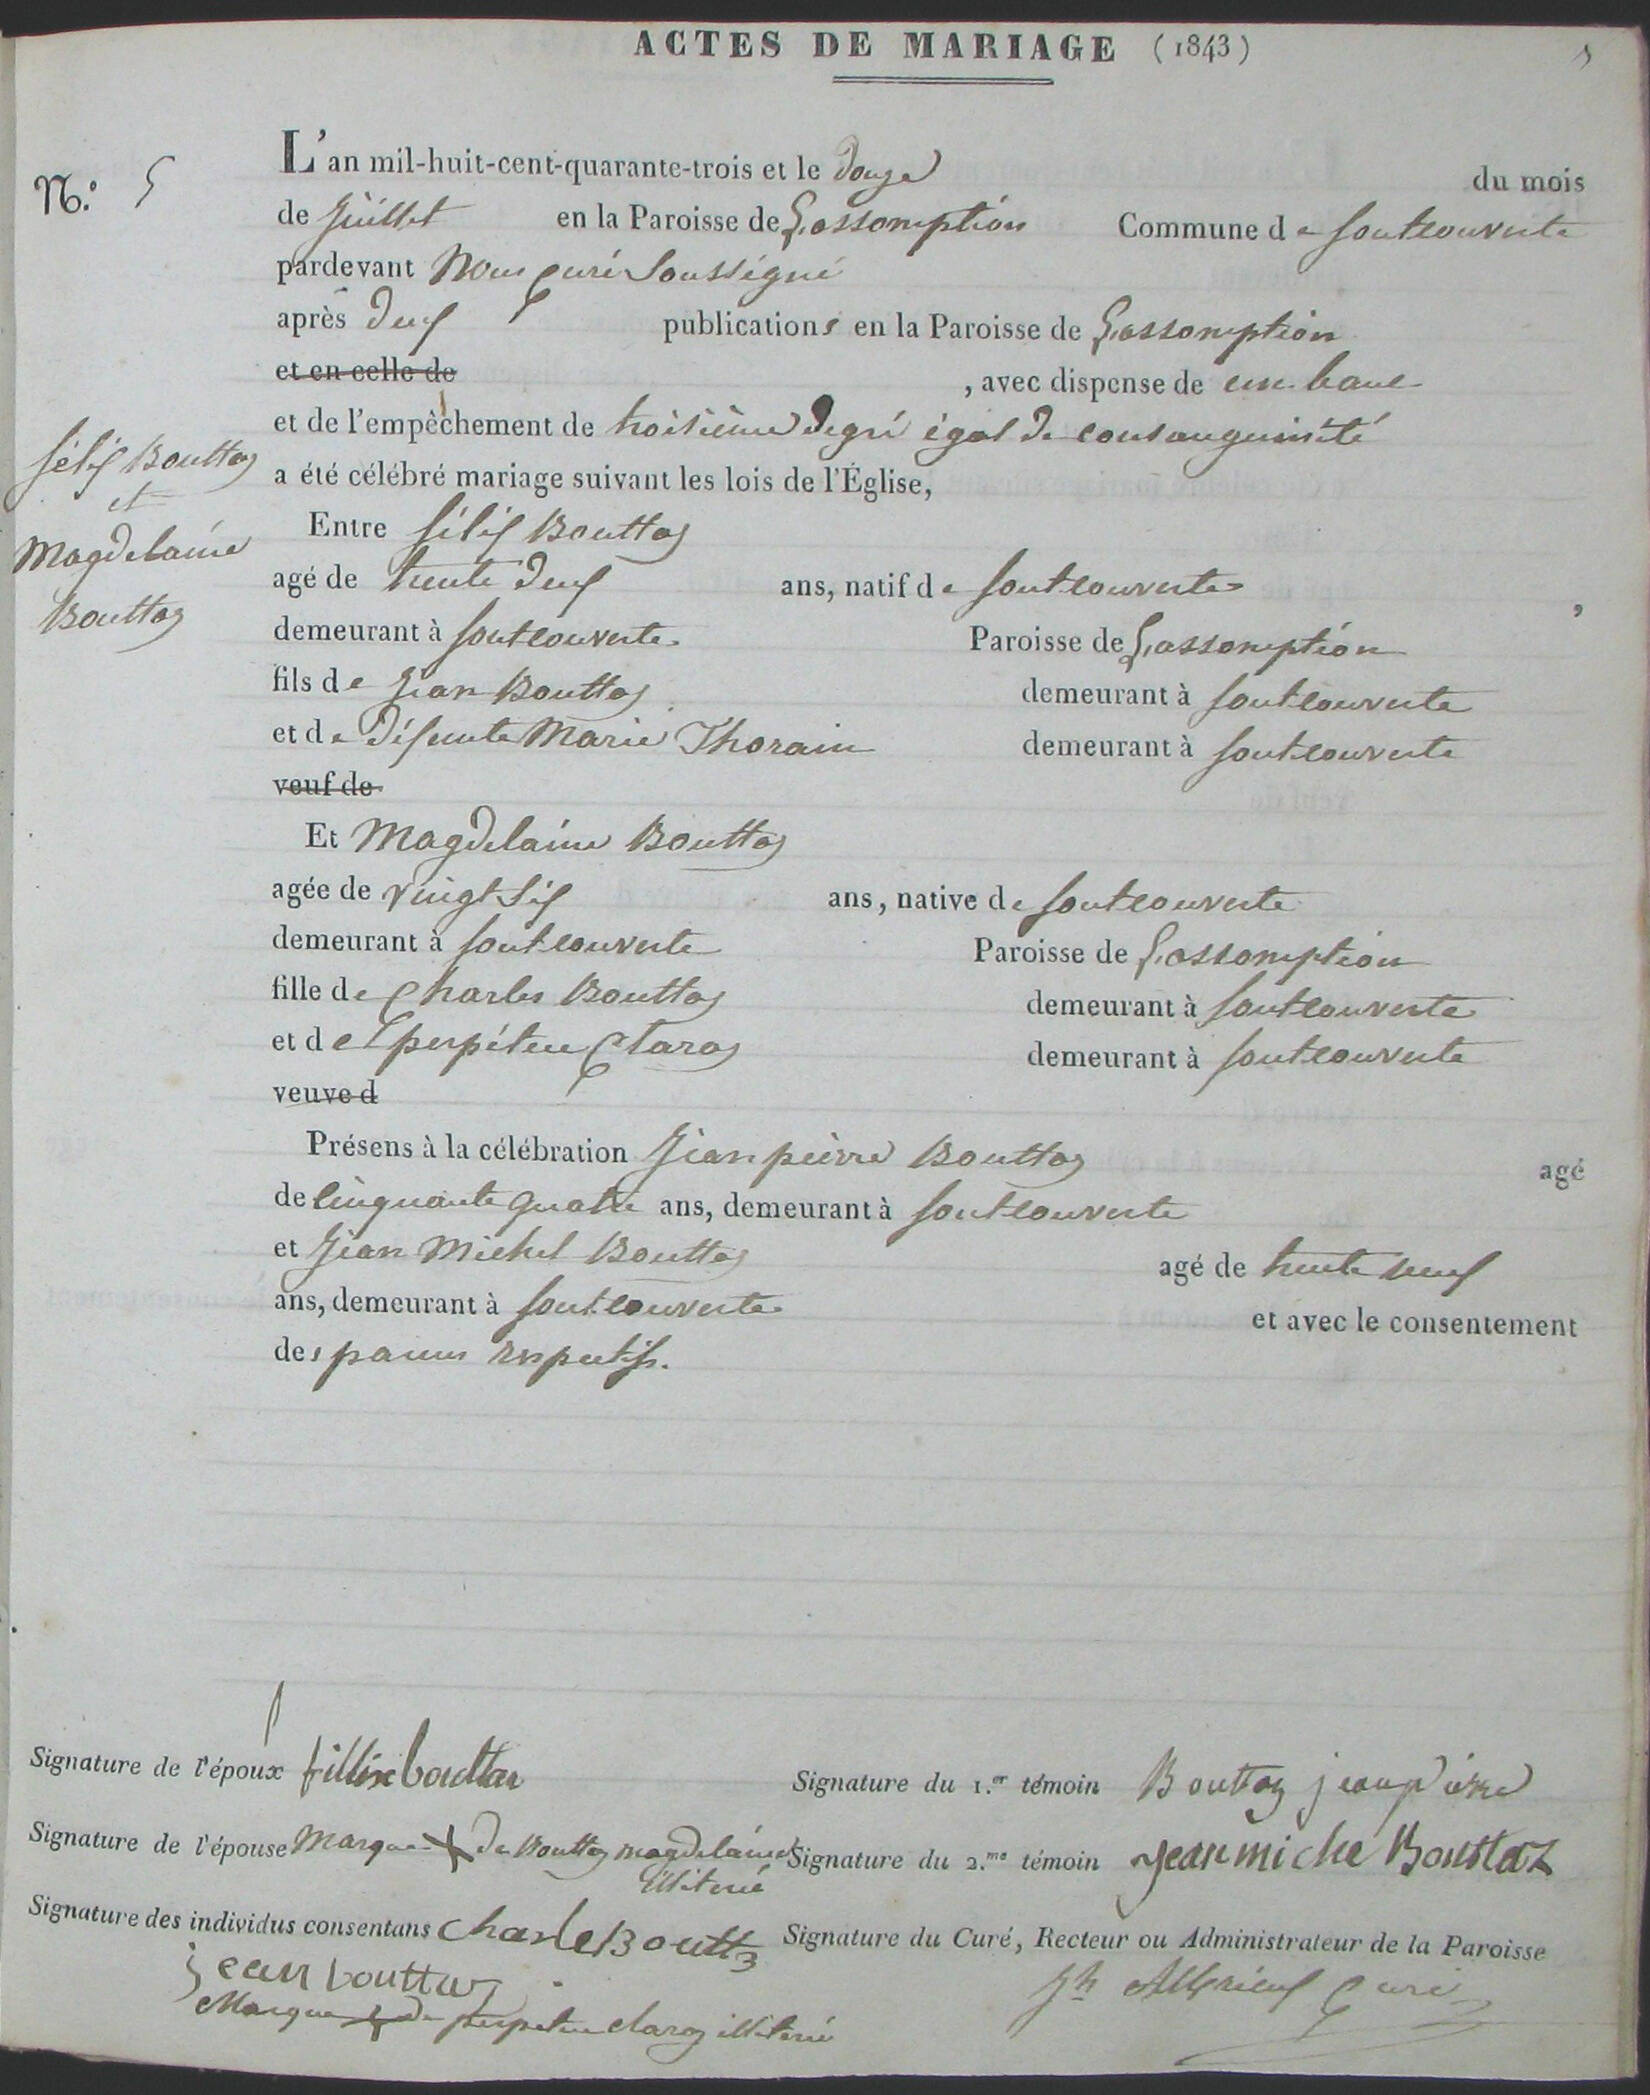 ACTES DE MARIAGE (1843)
5
N.o 5
L'an mil-huit-cent-quarante-trois et le douze du mois
de Juillet en la Paroisse de L'assomption Commune de fontcouverte
pardevant Nous curé soussigné
après deux publications en la Paroisse de L'assomption
et en celle de , avec dispense de un banc
et de l'empêchement de troisième degré égal de consanguinité
a été célébré mariage suivant les lois de l'Église,
félix Bouttaz
et
Magdelaine
Bouttaz
Entre félix Bouttaz
agé de trente deux ans, natif de fontcouverte ,
demeurant à fontcouverte Paroisse de L'assomption
fils de Jean Bouttaz demeurant à fontcouverte
et de défunte Marie Thorain demeurant à fontcouverte
veuf de
Et Magdelaine Bouttaz
agée de vingt six ans, native de fontcouverte
demeurant à fontcouverte Paroisse de L'assomption
fille de Charles Bouttaz demeurant à fontcouverte
et de perpétue Claraz demeurant à fontcouverte
veuve d
Présens à la célébration Jean pierre Bouttaz agé
de cinquante quatre ans, demeurant à fontcouverte
et Jean Michel Bouttaz agé de trente neuf
ans, demeurant à fontcouverte et avec le consentement
des parens respectifs.
Signature de l'époux fillix bouttaz Signature du 1.er témoin Bouttaz jeanpierre
Signature de l'épouse Marque + de Bouttaz magdelaine Signature du 2.me témoin jean miche Bouttaz
illiterée
Signature des individus consentans charle Bouttz Signature du Curé, Recteur ou Administrateur de la Paroisse
jean bouttaz Jh Albrieux Curé
Marque + de perpetue claraz illiterée